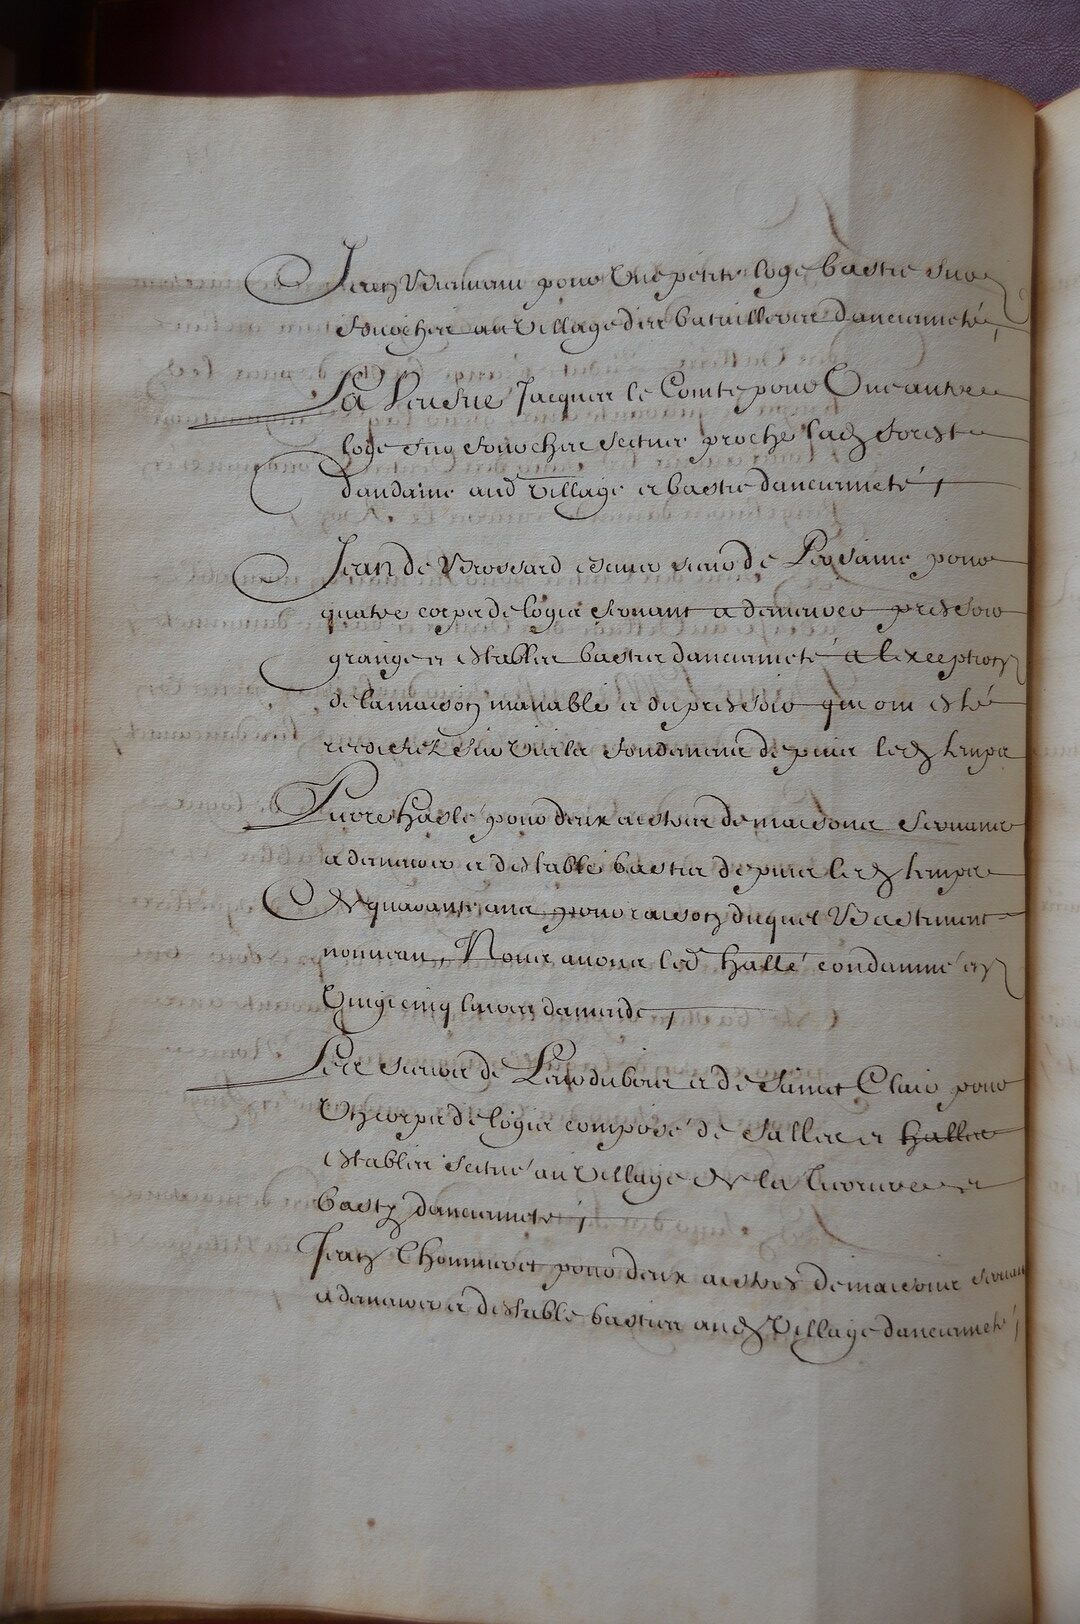 Jean Bramam pour Une petitte loge bastie sur
fourches au Village des batailleres d'ancienneté,
La Veufue Jacques le Comte pour Une autre
loge sur fourches scituee proche lad forest
dandaine aud Village et bastie dancienneté,
Jean de Brossard escuier sieur de pour
quatre corps de logis seruant a demeurer pressoir
grange et estables basties dancienneté a lexception
de la maison manable et du pressoir qui ont esté
reediffiez sur Vieils fondemens depuis led temps
Pierre haslé pour deux aistres de maisons seruans
a demeurer et destable basties depuis led temps
de quarante ans pour raison duquel Bastiment
nouueau, Nous auons led hallé condamné en
Vingt cinq liures damende,
Les sieurs de et de Sainct Clair pour
Un corps de logis composé de salles et halles
estables scitué au Village de la et
basty dancienneté,
Jean Lhommeret pour deux aistres de maisons seruans
a demeurer et destable basties aud Village dancienneté,